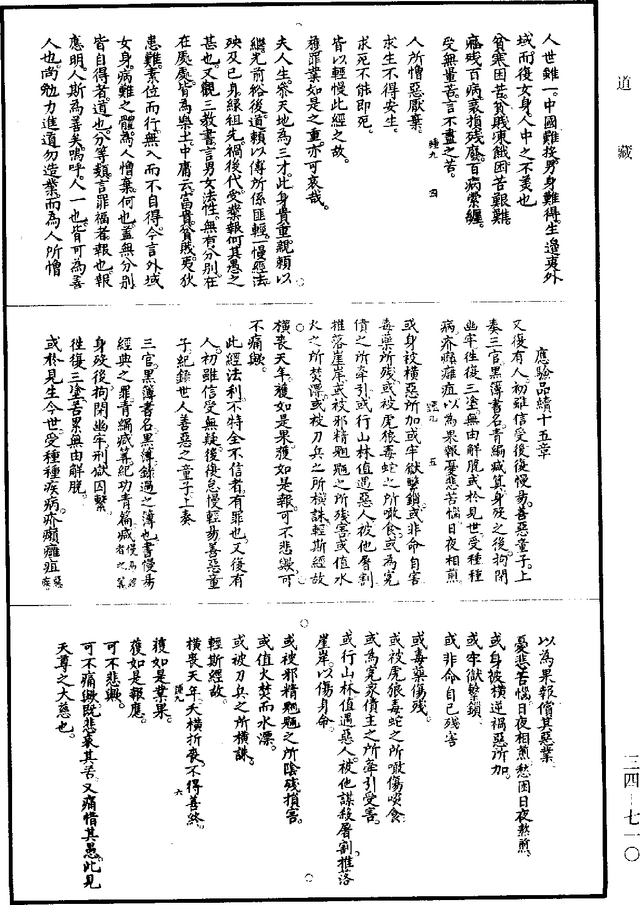 道藏
人世難一。中國難換男身難得。生邊夷外
域而復女身人中之不羙也
貧寒困苦。貧賤凍餓。困苦艱難。
癃残百病。衰損残廢。百病縈纏。
受無量苦。言不盡之苦。
人所憎惡厭棄。
求生不得安生。
求死不能即死。
皆以輕慢此經之故。
獲罪業如是之重。亦可哀哉。
夫人生。察天地為三才。此身貴重。親頼以
繼先前裕後道。頼以傳所係匪輕。一慢經法
殃及己身。緣祖先。禍後代。受業報何其愚之
甚也。又觀三教書言男女法性。無有分别。在
在處處。皆為樂土中庸云。富貴。貧賤。夷狄
患難。素位而行。無入而不自得。今言外域
女身。病難之體。為人憎棄。何也。蓋無分别
皆自得者。道也。分等類。言罪福者。報也。報
應明。人斯為善矣。嗚呼。人一也。皆可為善
人也。尚勉力進道。勿造業。而為人所憎
應驗品續十五章
又復有人。初雖信受。後復慢易。善惡童子。上
奏三官。黑簿書名。青編滅筭。身殁之後。拘閉
幽牢。徃復三塗。無由解脫。或於見世。受種種
病。疥癩癰疽。以為果報。憂悲苦惱。日夜相煎
或身被橫惡所加。或牢獄繫鎖。或非命自害
毒藥所残。或被虎狼毒蛇之所噉食。或為寃
債之所牽引。或行山林。值遇惡人。被他屠割
推落崖岸。或被邪精魍魎之所残害。或值水
火之所焚漂。或被刀兵之所橫誅。輕斯經故
橫喪天年。獲如是果。獲如是報。可不悲歟。可
不痛歟。
此經法利。不特全不信者。有罪也。又復有
人。初雖信受無疑。後復怠慢輕易。善惡童
子。紀錄世人善惡之童子。上奏
三官。黑簿書名。黑簿錄過之簿也。書慢易
經典之罪。青編滅筭。紀功青編。滅慢易經者之筭
身殁後。拘閉幽牢刑獄囚繫。
徃復三塗。苦累無由解脫。
或於見生今世。受種種疾病。疥癩癰疽惡疾。
以為果報。償其惡業。
憂悲苦惱。日夜相煎。愁困日夜熬煎。
或身被橫逆禍惡所加。
或牢獄繫鎖。
或非命自己残害
或毒藥傷残。
或被虎狼毒蛇之所噉傷啖食
或為寃家債主之所牽引受害。
或行山林。值遇惡人。被他謀殺屠割。推落
崖岸。以傷身命。
或被邪精魍魎之所陰残損害。
或值火焚而水漂。
或被刀兵之所橫誅。
輕斯經故。
橫喪天年。夭橫折喪。不得善終。
獲如是業果。
獲如是報應。
可不悲歟。
可不痛歟。既悲哀其苦。又痛惜其愚。此見
天尊之大慈也。
三四—七一〇